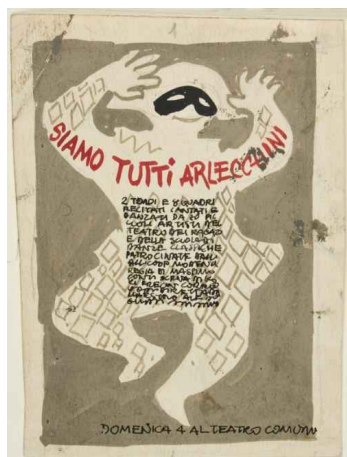 SIAMO TUTTI ARLECCHINI
2 TEMPI E 8 QUADRI
RECITATI CANTATI E
DANZATI DA 80 PIC
COLI ARTISTI DEL
TEATRO DEI RAGAZZI
E DELLA SCUOLA DI
DANZE CLASSICHE
PATROCINATE DALL
MODENA
REGIA DI MASSIMO
CONTI SCENA DI
DOMENICA 4 AL TEATRO COMUNALE